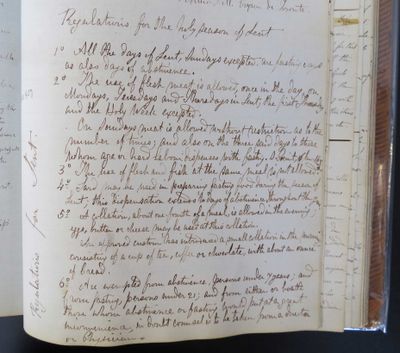 Regulations for the holy season of Lent
1° All the days of Lent, Sundays excepted, are fasting days
as also days of abstinence.
2° The use of flesh meat is allowed, once in the day, on
Mondays, Tuesdays and Thursdays in Lent, the first Thursday
and the Holy Week excepted.
On Sundays meat is allowed without restriction as to the
number of times; and also on the three said days to those
whom age or hard labour dispenses with fasting.
3° The use of flesh and fish at the same meal is not allowed
4° Lard may be used in preparing fasting food during the season of
Lent; this dispensation extends to days of abstinence throughout the year
5° A collation, about one fourth of a meal, is allowed in the evening;
eggs, butter or cheese may be used at this collation.
An approved custom has introduced a small collation in the morning
consisting of a cup of tea, coffee or chocolate, with about an ounce
of bread.
6° Are exempted from abstinence, persons under 7 years; and
from fasting, persons under 21; and from either or both
those whom abstinence or fasting would put at a great
inconvenience; in doubt counsel is to be taken from a
or Physician.
Regulations for Lent.